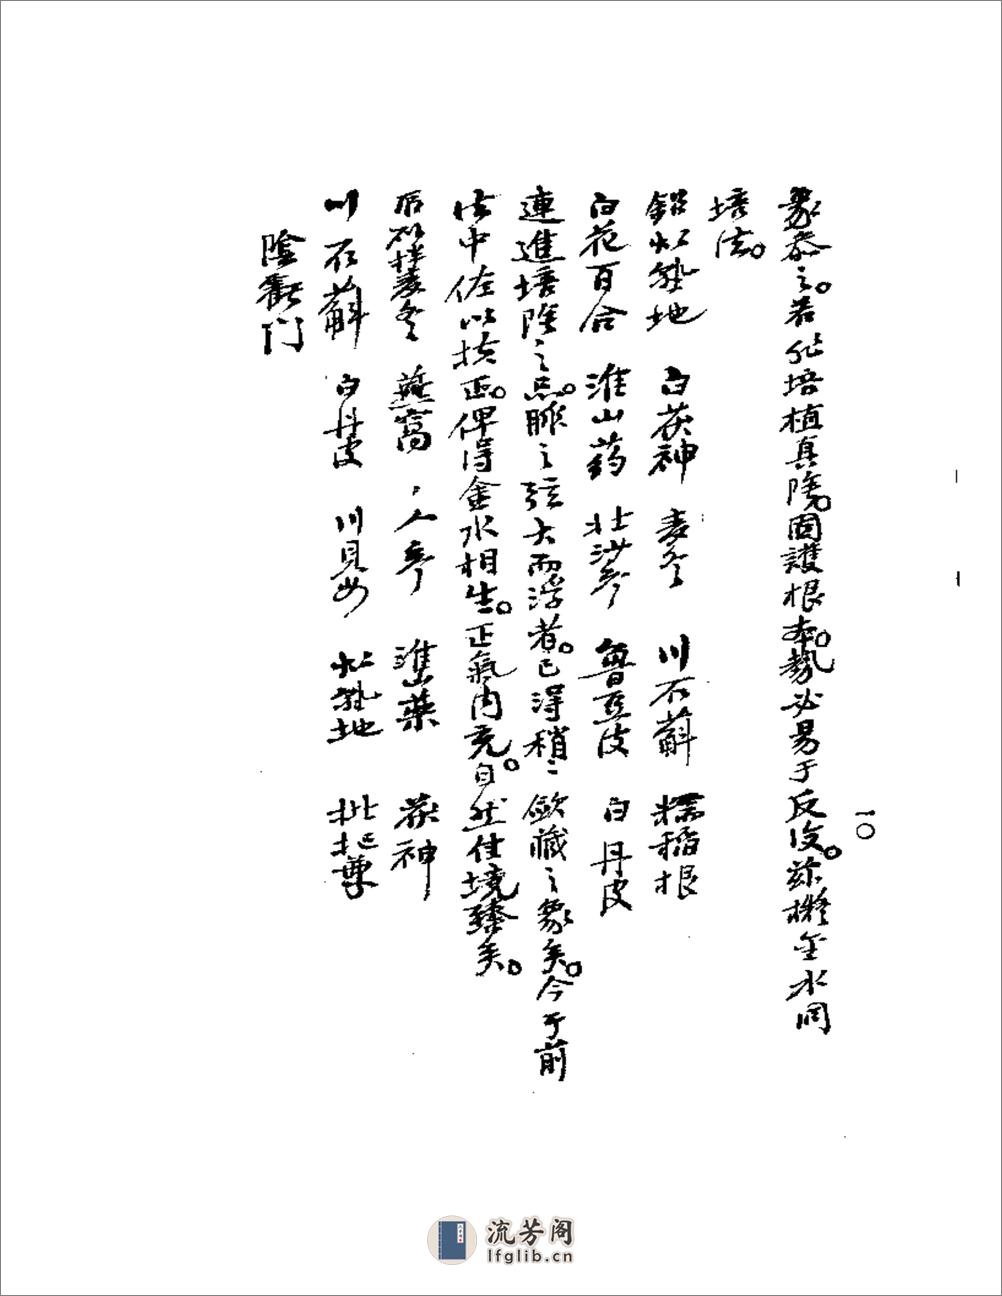 象忝之。若非培植真陰。固護根本。勢必易于反復。茲擬金水同
培法。
白茯神 麦冬 川石斛 糯稻根
白花百合 淮山药 北沙参 魯豆皮 白丹皮
連進培陰之品。脈之弦大而浮者。已得稍〻斂藏之象矣。今于前
法中佐以扶正。俾得金水相生。正氣内充。自然佳境臻矣。
麦冬 燕窩 人参 淮山藥 茯神
川石斛 白丹皮 川貝母 松熟地 枇杷葉
陰虧门
一〇
流芳阁
lfglib.cn